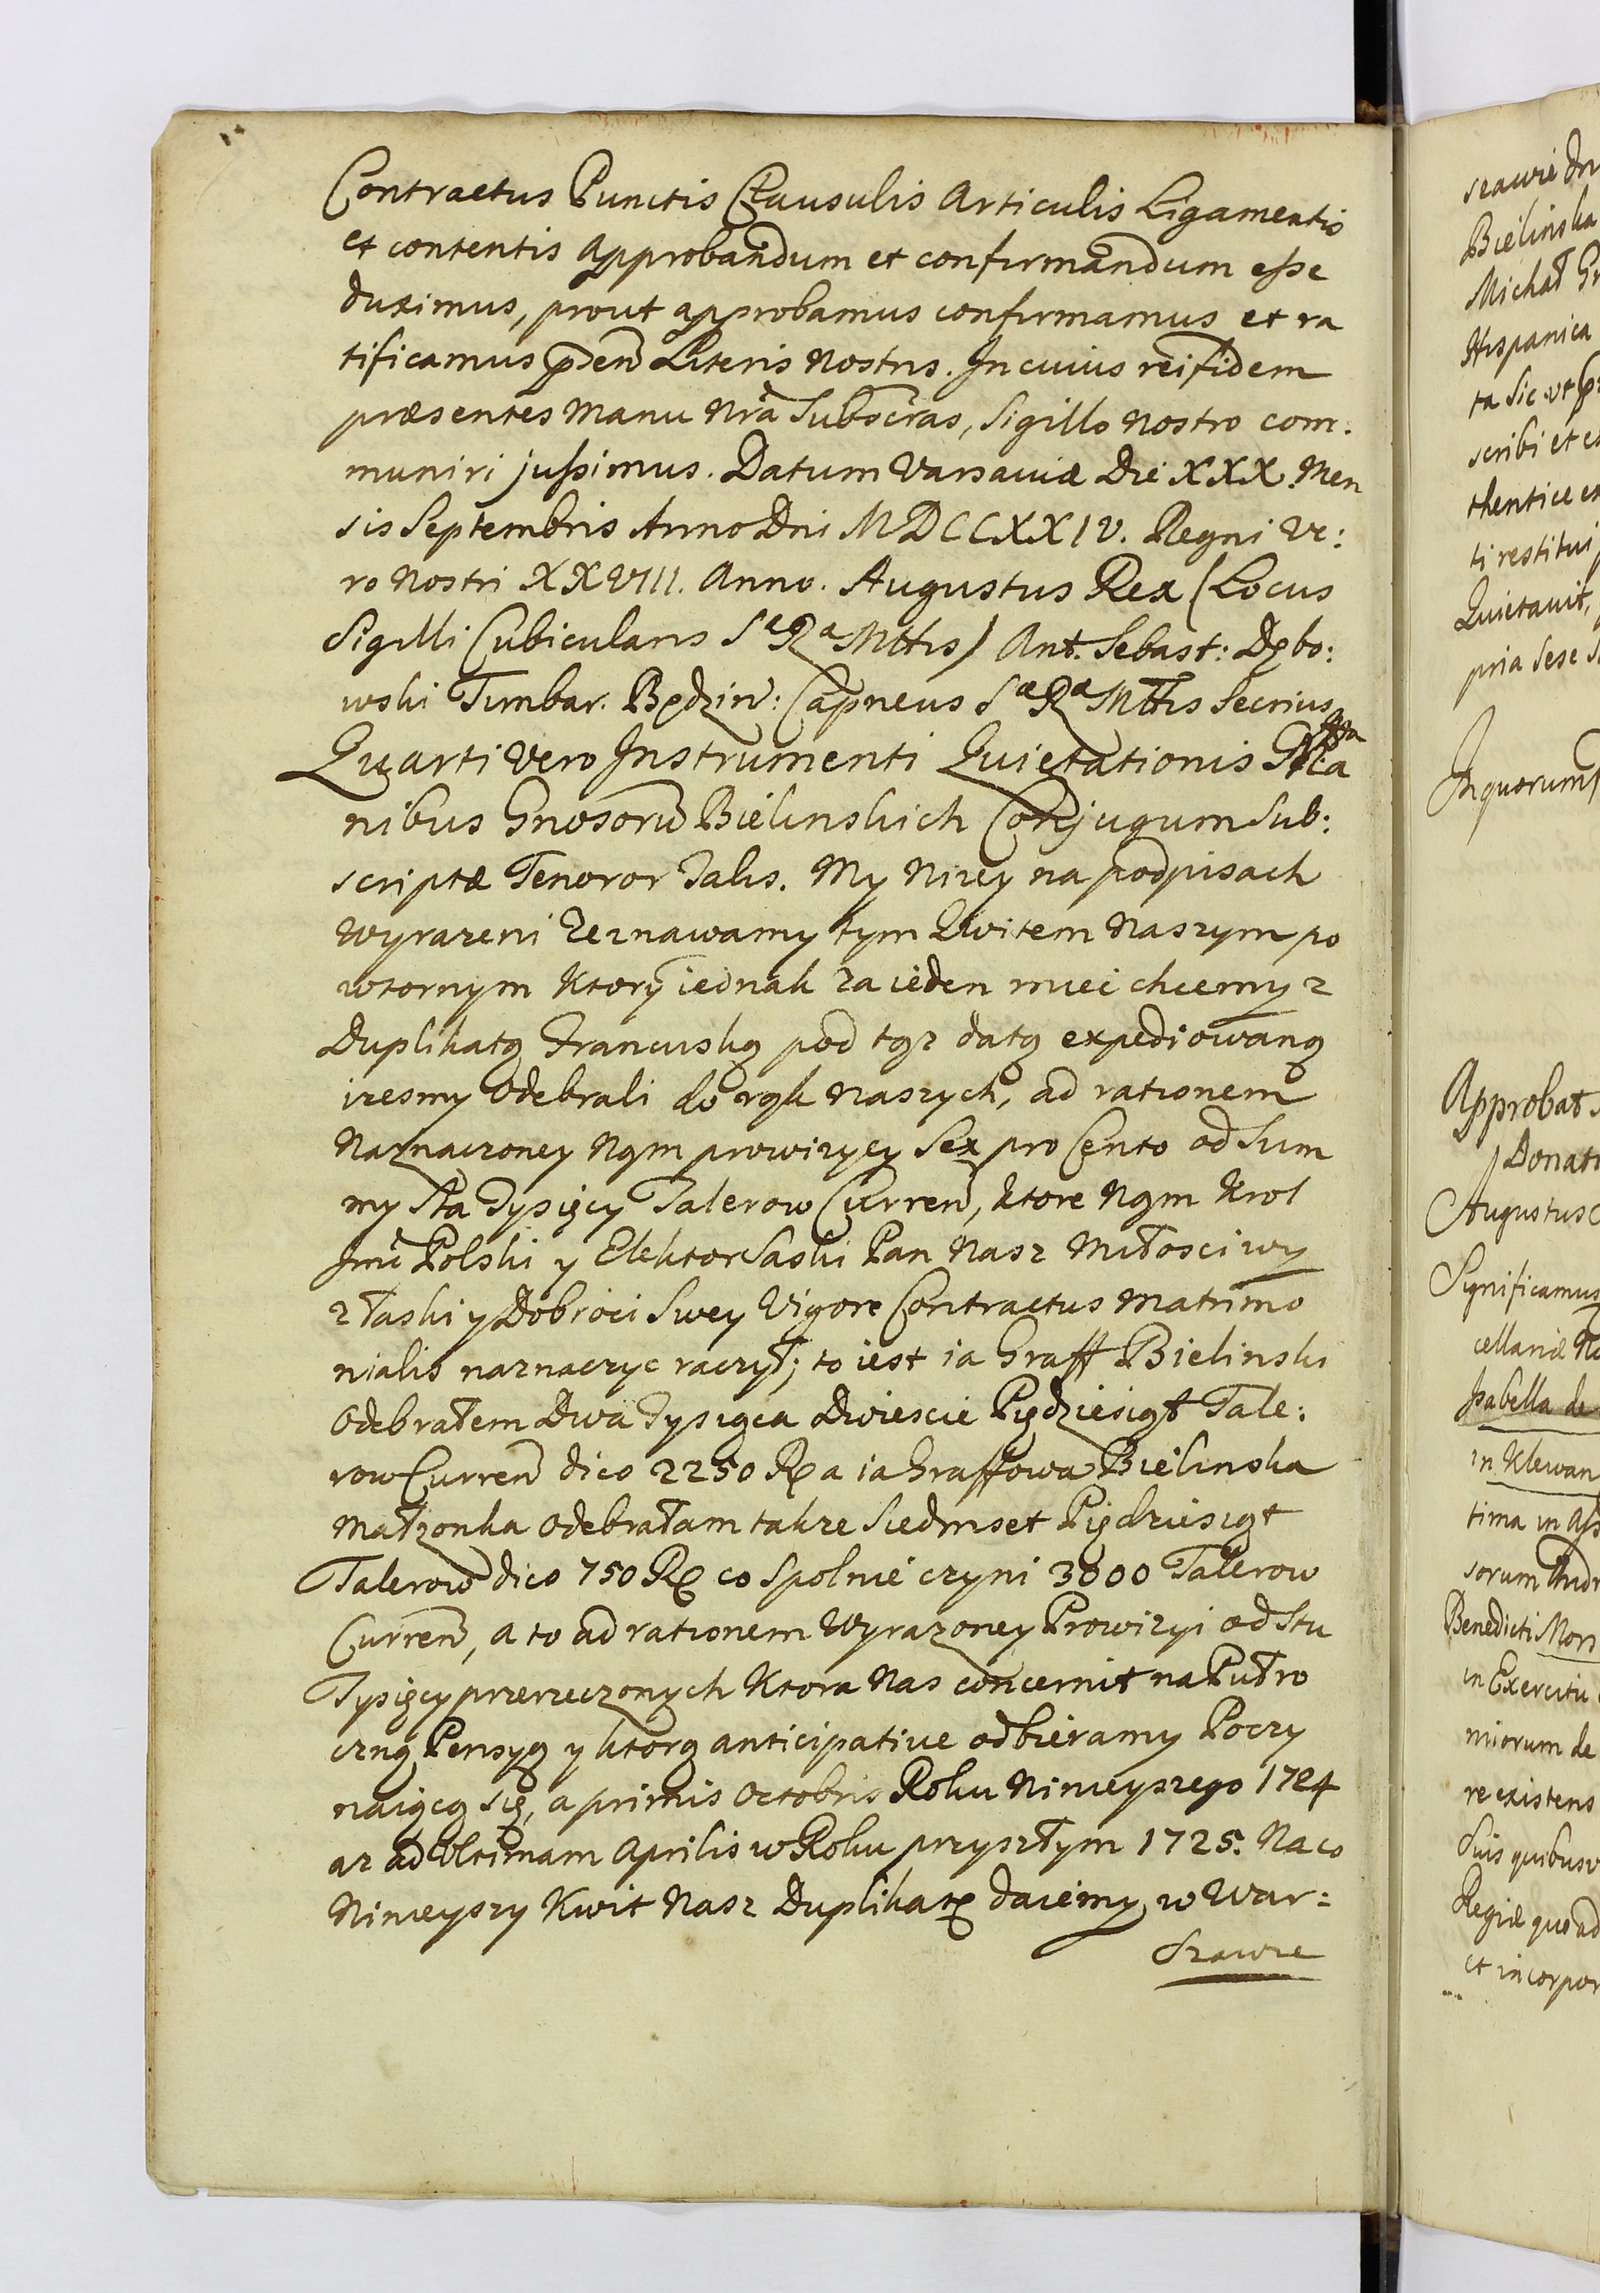 Contractus Punctis Clausulis Articulis Ligamentis
et contentis Approbandum et confirmandum esse
duximus, prout approbamus confirmamus et ra
tificamus pñsen Literis Nostris. In cuius rei fidem
præsentes Manu Nrã Subscras, Sigillo Nostro com:
muniri jussimus. Datum Varsaviæ Die XXX. Men
sis Septembris Anno Dni MDCCXXIV. Regni Ve:
ro Nostri XXVIII. Anno. Augustus Rex (Locus
Sigilli Cubicularis Sæ Ræ Mttis) Ant. Sebast: Dębo:
wski Timbar. Będzin: Capneus Sæ Ræ Mttis Secrius
Quarti Vero Instrumenti Quietationis
nibus Gnosorũ Bielinskich Conjugum Sub:
scriptæ Tenoror Talis. My Nizey na podpisach
Wyrazeni Zeznawamy tym Qwitem Naszym po
wtornym Ktory iednak za ieden miec chcemy z
Duplikatą Francuską pod tąz datą expediowaną
izesmy Odebrali do rąk Naszych, ad rationem
Naznaczoney Nąm prowizyey Sex pro Cento od Sum
my Sta Tysięcy Talerow Curren, ktore Nąm Krol
Jmć Polski y Elektor Saski Pan Nasz Miłosciwy
z łaski y Dobroci Swey Vigore Contractus Matrimo
nialis naznaczyc raczył; to iest ia Graff Bielinski
Odebrałem Dwa Tysiąca Dwiescie Piędziesiąt Tale:
row Curren dico 2250 R a ia Graffowa Bielinska
Małzonka Odebrałam takze Siedmset Pięcdziesiąt
Talerow dico 750 R co Spolnie czyni 3000 Talerow
Curren, a to ad rationem Wyrazoney Prowizyi od Stu
Tysięcy przerzeczonych Ktora Nas concernit na Puł ro
czną Pensyą y ktorą anticipative odbieramy Poczy
naiącą się, a primis Octobris Roku Ninieyszego 1724
az ad Ultimam Aprilis w Roku przyszłym 1725. Na co
Ninieyszy Kwit Nasz Duplikatę daiemy w War:
szawie
szawie
Bielinska
Michał Gr
Hispanica
ta sic ut
scribi et
thentice
ti restitui
Quietavit,
pria sese
In quorum
Approbat
Donati
Augustus
Significamus
cellariæ
Isabella de
in Klewan
tima in
sorum
Benedicti Mors
in Exercitu
niorum de
re existens
Suis quibusv
Regiæ quo ad
et incorpor